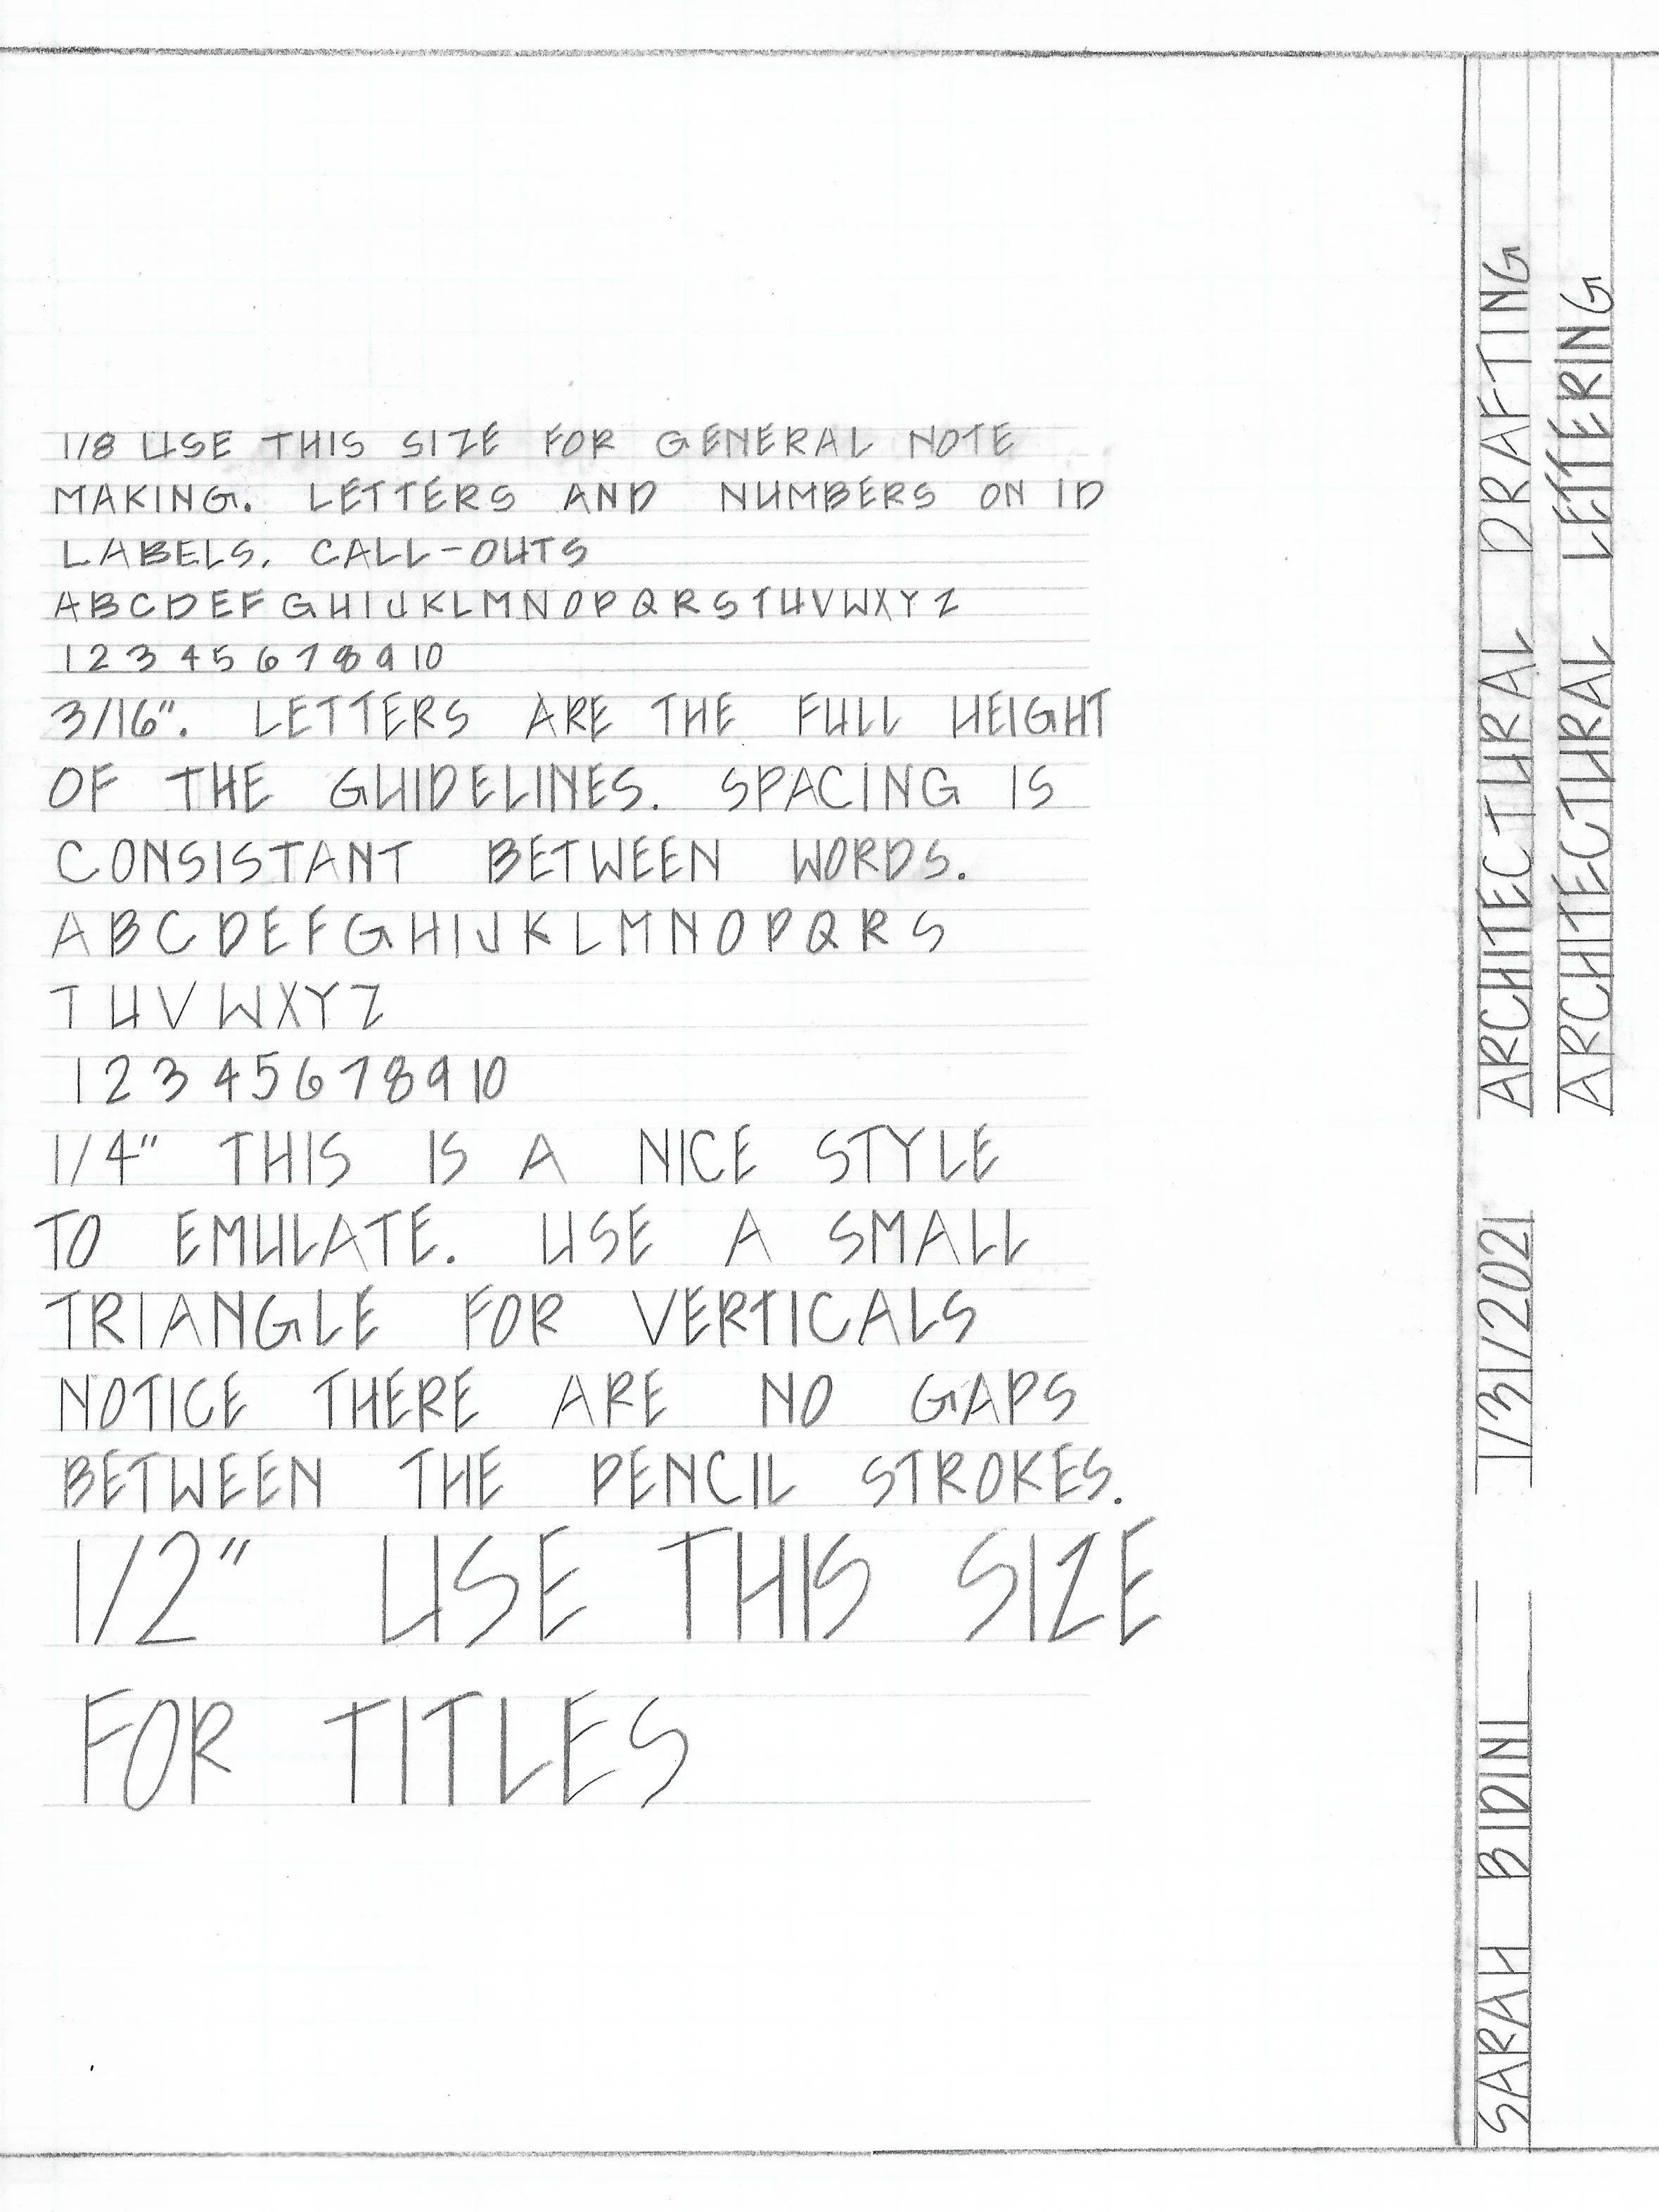 1/8 USE THIS SIZE FOR GENERAL NOTE
MAKING. LETTERS AND NUMBERS ON ID
LABELS. CALL-OUTS
A B C D E F G H I J K L M N O P Q R S T U V W X Y Z
1 2 3 4 5 6 7 8 9 10
3/16". LETTERS ARE THE FULL HEIGHT
OF THE GUIDELINES. SPACING IS
CONSISTANT BETWEEN WORDS.
A B C D E F G H I J K L M N O P Q R S
T U V W X Y Z
1 2 3 4 5 6 7 8 9 10
1/4" THIS IS A NICE STYLE
TO EMULATE. USE A SMALL
TRIANGLE FOR VERTICALS
NOTICE THERE ARE NO GAPS
BETWEEN THE PENCIL STROKES.
1/2" USE THIS SIZE
FOR TITLES
SARAH BIDINI 1/31/2021 ARCHITECTURAL DRAFTING
ARCHITECTURAL LETTERING